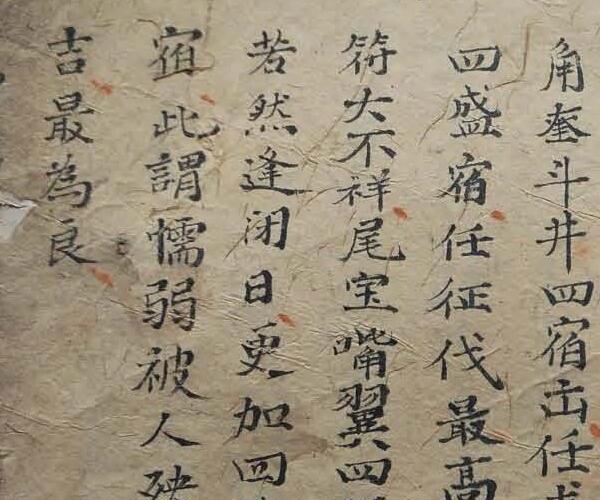 角奎斗井四宿出任
四盛宿任征伐最高
符大不祥尾室嘴翼四
若然逢闭日更加四
宿此謂懦弱被人
吉最為良